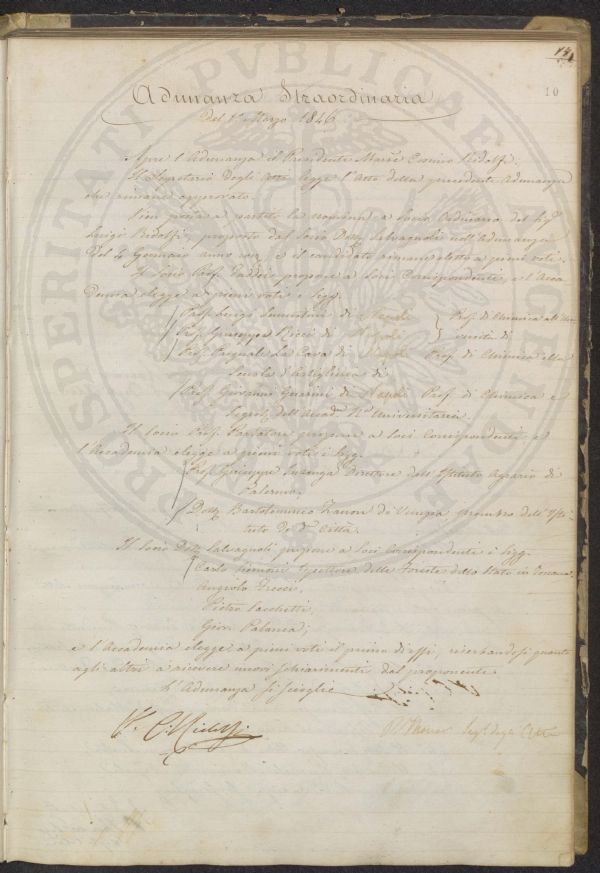 14
10
Adunanza Straordinaria
Del 1° Marzo 1846
Apre l'Adunanza il Presidente March. Cosimo Ridolfi.
Il Segretario degli Atti legge l'Atto della precedente Adunanza
che rimane approvato.
Vien posta a partito la nomina a Socio Ordinario del Sigr.
Luigi Ridolfi proposto dal Socio Dott. Salvagnoli nell'Adunanza
del 4 Gennaio anno e il candidato rimane eletto a pieni voti.
Il Socio Prof. Taddei propone a Soci Corrispondenti, e l'Acca-
demia elegge a pieni voti i Sigg.
Prof. Luigi di Napoli Prof. di Chimica all'Uni-
Prof. Giuseppe Ricci di Napoli versità di
Prof. Pasquale La Cava di Napoli Prof. di Chimica alla
Scuola d'Artiglieria di
Prof. Giovanni Guarini di Napoli Prof. di Chimica e
Segret. dell'Accad.
Il Socio Prof. propone a Soci Corrispondenti, e
l'Accademia elegge a pieni voti i Sigg.
Prof. Giuseppe Inzenga Direttore dell'Istituto Agrario di
Palermo,
Dott. Bartolommeo Zanon di Venezia membro dell'Isti-
tuto di da. Città.
Il Socio Dott. Salvagnoli propone a Soci Corrispondenti i Sigg.
Carlo Siemoni Ispettore delle Foreste dello Stato in Toscana,
Angiolo
Pietro Sacchetti,
Giov.
e l'Accademia elegge a pieni voti il primo di essi, riserbandosi quanto
agli altri a ricevere nuovi schiarimenti dal proponente.
L'Adunanza si scioglie
C. Ridolfi
Segr. degli Atti
PROSPERITATI PUBLICAE AUGENDAE